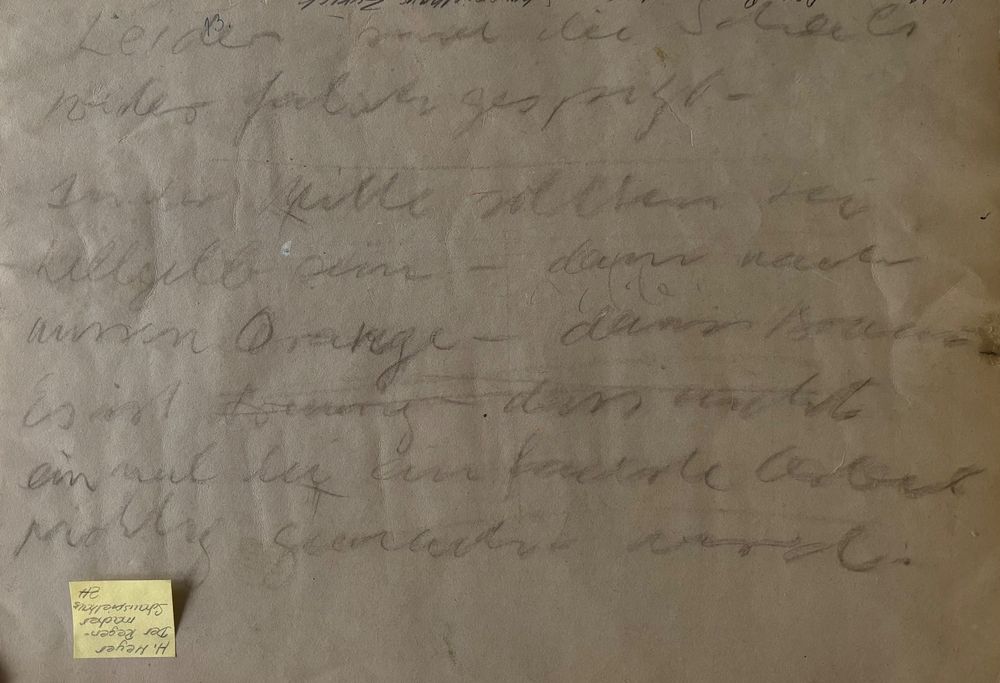 13.
Leider sind die Scheils
wider falsch gesprizt -
In der Mitte sollten sei
hellgelb sein - dann nach
aussen Orange - dann Braun
Es ist traurig dass nicht
ein mal die ein fachste Arbeit
richtig gemacht wird.
H. Heyer
Der Regen-
macher
Schauspielhaus
ZH